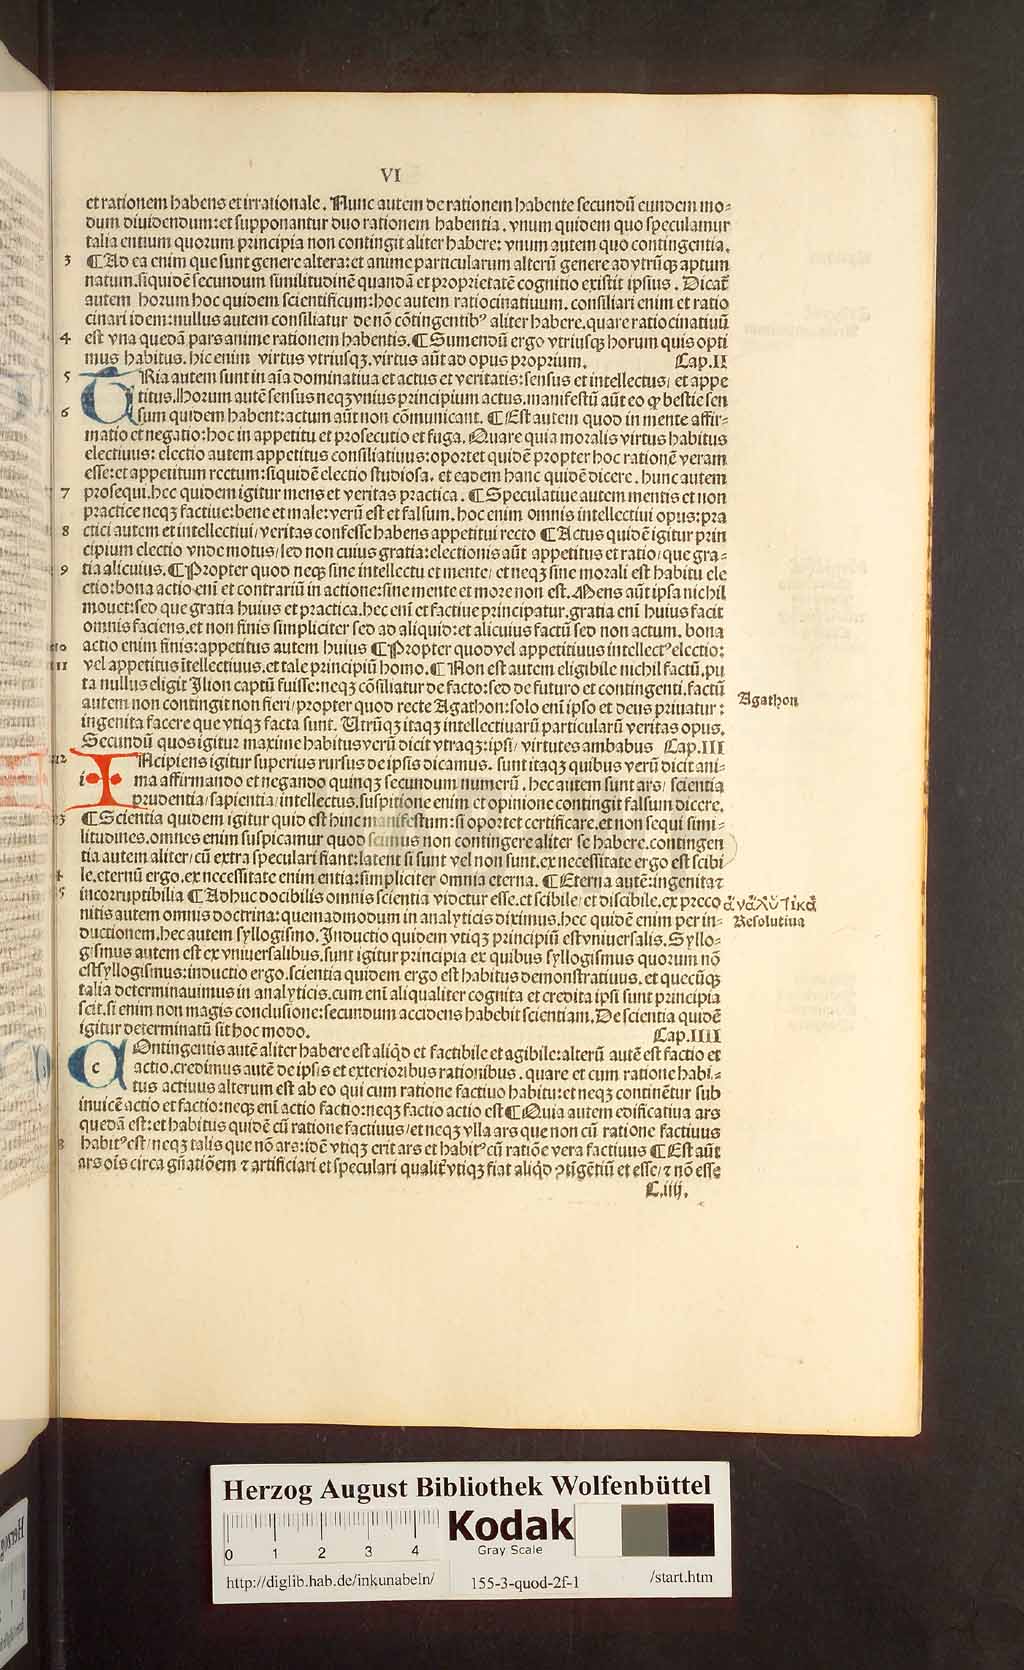 VI
et rationem habens et irrationale. Nunc autem de rationem habente secundū eundem mo⸗
dum diuidendum: et supponantur duo rationem habentia. vnum quidem quo speculamur
talia entium quorum principia non contingit aliter habere: vnum autem quo contingentia.
3 ¶Ad ea enim que sunt genere altera: et anime particularum alterū genere ad vtrūqꝫ aptum
natum. siquidē secundum similitudinē quandā et proprietatē cognitio existit ipsius. Dicat̄
autem horum hoc quidem scientificum: hoc autem ratiocinatiuum. consiliari enim et ratio
cinari idem: nullus autem consiliatur de nō cōtingentibꝰ aliter habere. quare ratiocinatiuū
4 est vna quedā pars anime rationem habentis. ¶Sumendū ergo vtriusqꝫ horum quis opti
mus habitus. hic enim virtus vtriusqꝫ. virtus aūt ad opus proprium. Cap. II
5 TRia autem sunt in aīa dominatiua et actus et veritatis: sensus et intellectus/ et appe
titus. Horum autē sensus neqꝫ vnius principium actus. manifestū aūt eo ꝙ bestie sen
6 sum quidem habent: actum aūt non cōmunicant. ¶Est autem quod in mente affir⸗
matio et negatio: hoc in appetitu et prosecutio et fuga. Quare quia moralis virtus habitus
electiuus: electio autem appetitus consiliatiuus: oportet quidē propter hoc rationē veram
esse: et appetitum rectum: siquidē electio studiosa. et eadem hanc quidē dicere. hunc autem
7 prosequi. hec quidem igitur mens et veritas practica. ¶Speculatiue autem mentis et non
practice neqꝫ factiue: bene et male: verū est et falsum. hoc enim omnis intellectiui opus: pra
8 ctici autem et intellectiui/ veritas confesse habens appetitui recto ¶Actus quidē igitur prin
cipium electio vnde motus/ sed non cuius gratia: electionis aūt appetitus et ratio/ que gra⸗
9 tia alicuius. ¶Propter quod neqꝫ sine intellectu et mente/ et neqꝫ sine morali est habitu ele
ctio: bona actio enī et contrariū in actione: sine mente et more non est. Mens aūt ipsa nichil
mouet: sed que gratia huius et practica. hec enī et factiue principatur. gratia enī huius facit
omnis faciens. et non finis simpliciter sed ad aliquid: et alicuius factū sed non actum. bona
10 actio enim finis: appetitus autem huius ¶Propter quod vel appetitiuus intellectꝰ electio:
11 vel appetitus ītellectiuus. et tale principiū homo. ¶Non est autem eligibile nichil factū. pu
ta nullus eligit Ilion captū fuisse: neqꝫ cōsiliatur de facto: sed de futuro et contingenti. factū
autem non contingit non fieri/ propter quod recte Agathon: solo enī ipso et deus priuatur:
Agathon
ingenita facere que vtiqꝫ facta sunt. Vtrūqꝫ itaqꝫ intellectiuarū particularū veritas opus.
Secundū quos igitur maxime habitus verū dicit vtraqꝫ: ipsi/ virtutes ambabus Cap. III
12 INcipiens igitur superius rursus de ipsis dicamus. sunt itaqꝫ quibus verū dicit ani⸗
i ma affirmando et negando quinqꝫ secundum numerū. hec autem sunt ars/ scientia
prudentia/ sapientia/ intellectus. suspitione enim et opinione contingit falsum dicere.
3 ¶Scientia quidem igitur quid est hinc manifestum: si oportet certificare. et non sequi simi⸗
litudines. omnes enim suspicamur quod scimus non contingere aliter se habere. contingen
tia autem aliter/ cū extra speculari fiant: latent si sunt vel non sunt. ex necessitate ergo est scibi
4 le. eternū ergo. ex necessitate enim entia: simpliciter omnia eterna. ¶Eterna autē: ingenita ⁊
5 incorruptibilia ¶Adhuc docibilis omnis scientia videtur esse. et scibile/ et discibile. ex preco
ἀναλυτικὰ
nitis autem omnis doctrina: quemadmodum in analyticis diximus. hec quidē enim per in⸗
Resolutiua
ductionem. hec autem syllogismo. Inductio quidem vtiqꝫ principiū est vniuersalis. Syllo⸗
gismus autem est ex vniuersalibus. sunt igitur principia ex quibus syllogismus quorum nō
est syllogismus: inductio ergo. scientia quidem ergo est habitus demonstratiuus. et quecūqꝫ
talia determinauimus in analyticis. cum enī aliqualiter cognita et credita ipsi sunt principia
scit. si enim non magis conclusione: secundum accidens habebit scientiam. De scientia quidē
igitur determinatū sit hoc modo. Cap. IIII
COntingentis autē aliter habere est aliqd̄ et factibile et agibile: alterū autē est factio et
c actio. credimus autē de ipsis et exterioribus rationibus. quare et cum ratione habi⸗
tus actiuus alterum est ab eo qui cum ratione factiuo habitu: et neqꝫ continētur sub
inuicē actio et factio: neqꝫ enī actio factio: neqꝫ factio actio est ¶Quia autem edificatiua ars
quedā est: et habitus quidē cū ratione factiuus/ et neqꝫ vlla ars que non cū ratione factiuus
8 habitꝰ est/ neqꝫ talis que nō ars: idē vtiqꝫ erit ars et habitꝰ cū ratiōe vera factiuus ¶Est aūt
ars oīs circa gn̄atiōem ⁊ artificiari et speculari qualit̄ vtiqꝫ fiat aliqd̄ ꝯtīgētiū et esse/ ⁊ nō esse
C. iiij.
Herzog August Bibliothek Wolfenbüttel
0 1 2 3 4
Kodak
Gray Scale
http://diglib.hab.de/inkunabeln/ 155-3-quod-2f-1 /start.htm